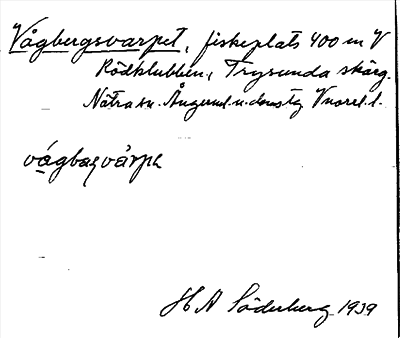 Vågbergsvarpet, fiskeplats 400 m V
Rödklubben, Trysunda skärg.
Nätra sn. Ångerml. n. domstg Vnorrl. l.
vágbaꞃvàrpə
H A Söderberg 1939